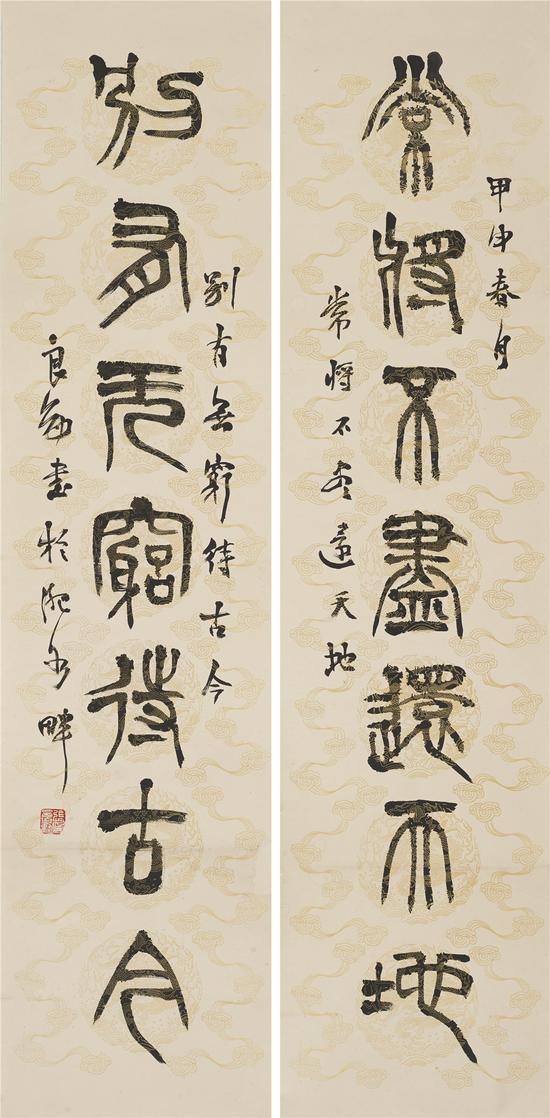 甲申春月
常將不盡還天地
常將不盡還天地
別有無窮待古今
別有无窮待古今
良勋書於淝水畔